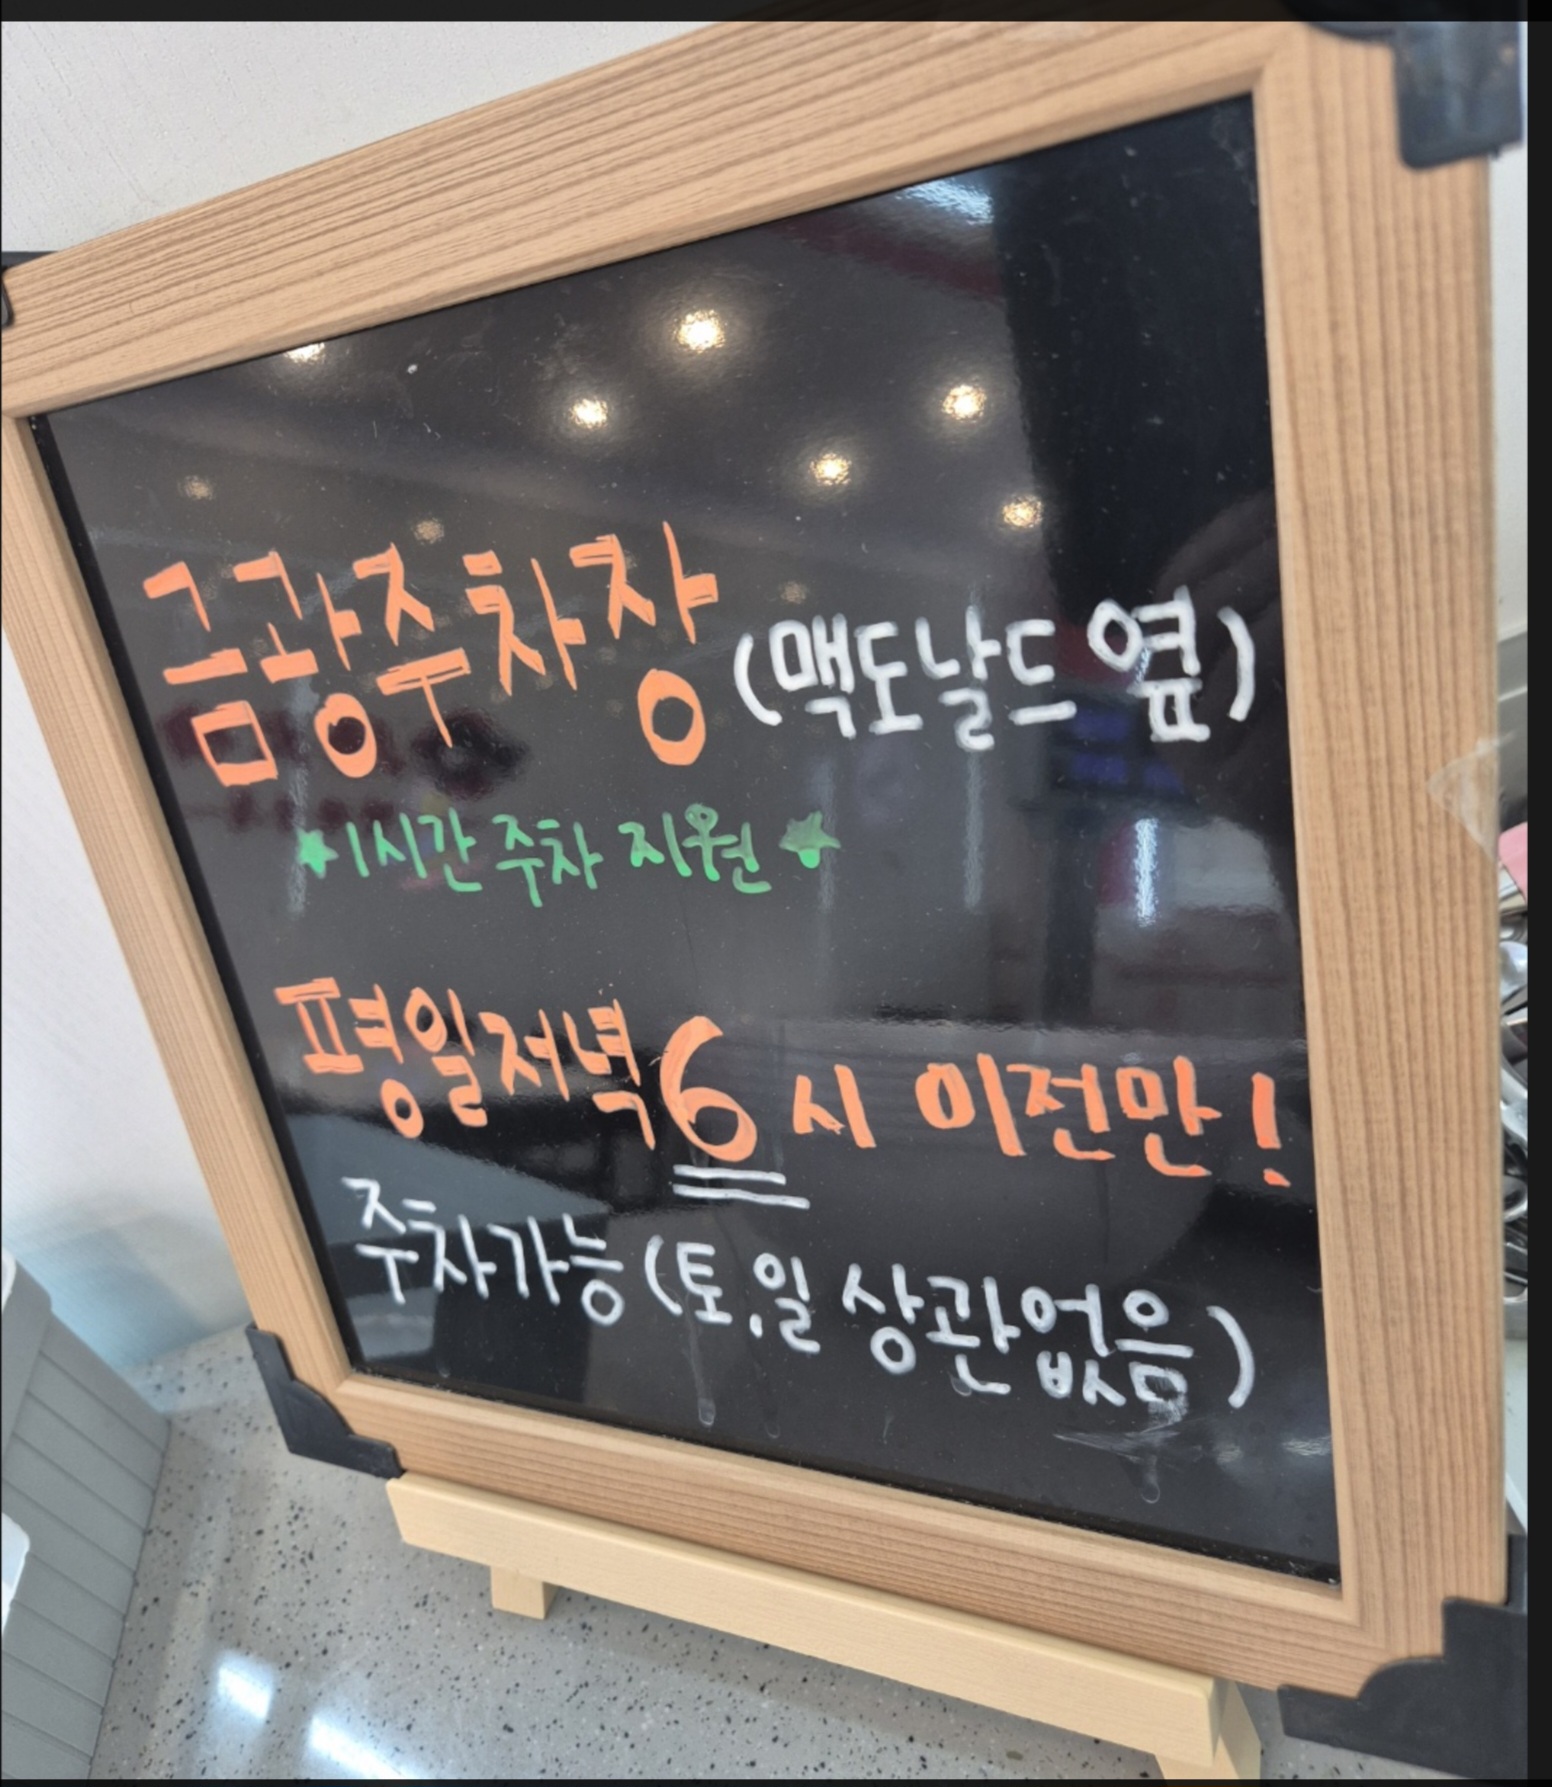 금광주차장 (맥도날드 옆)
★1시간 주차 지원★
평일저녁 6시 이전만!
주차가능 (토,일 상관없음)